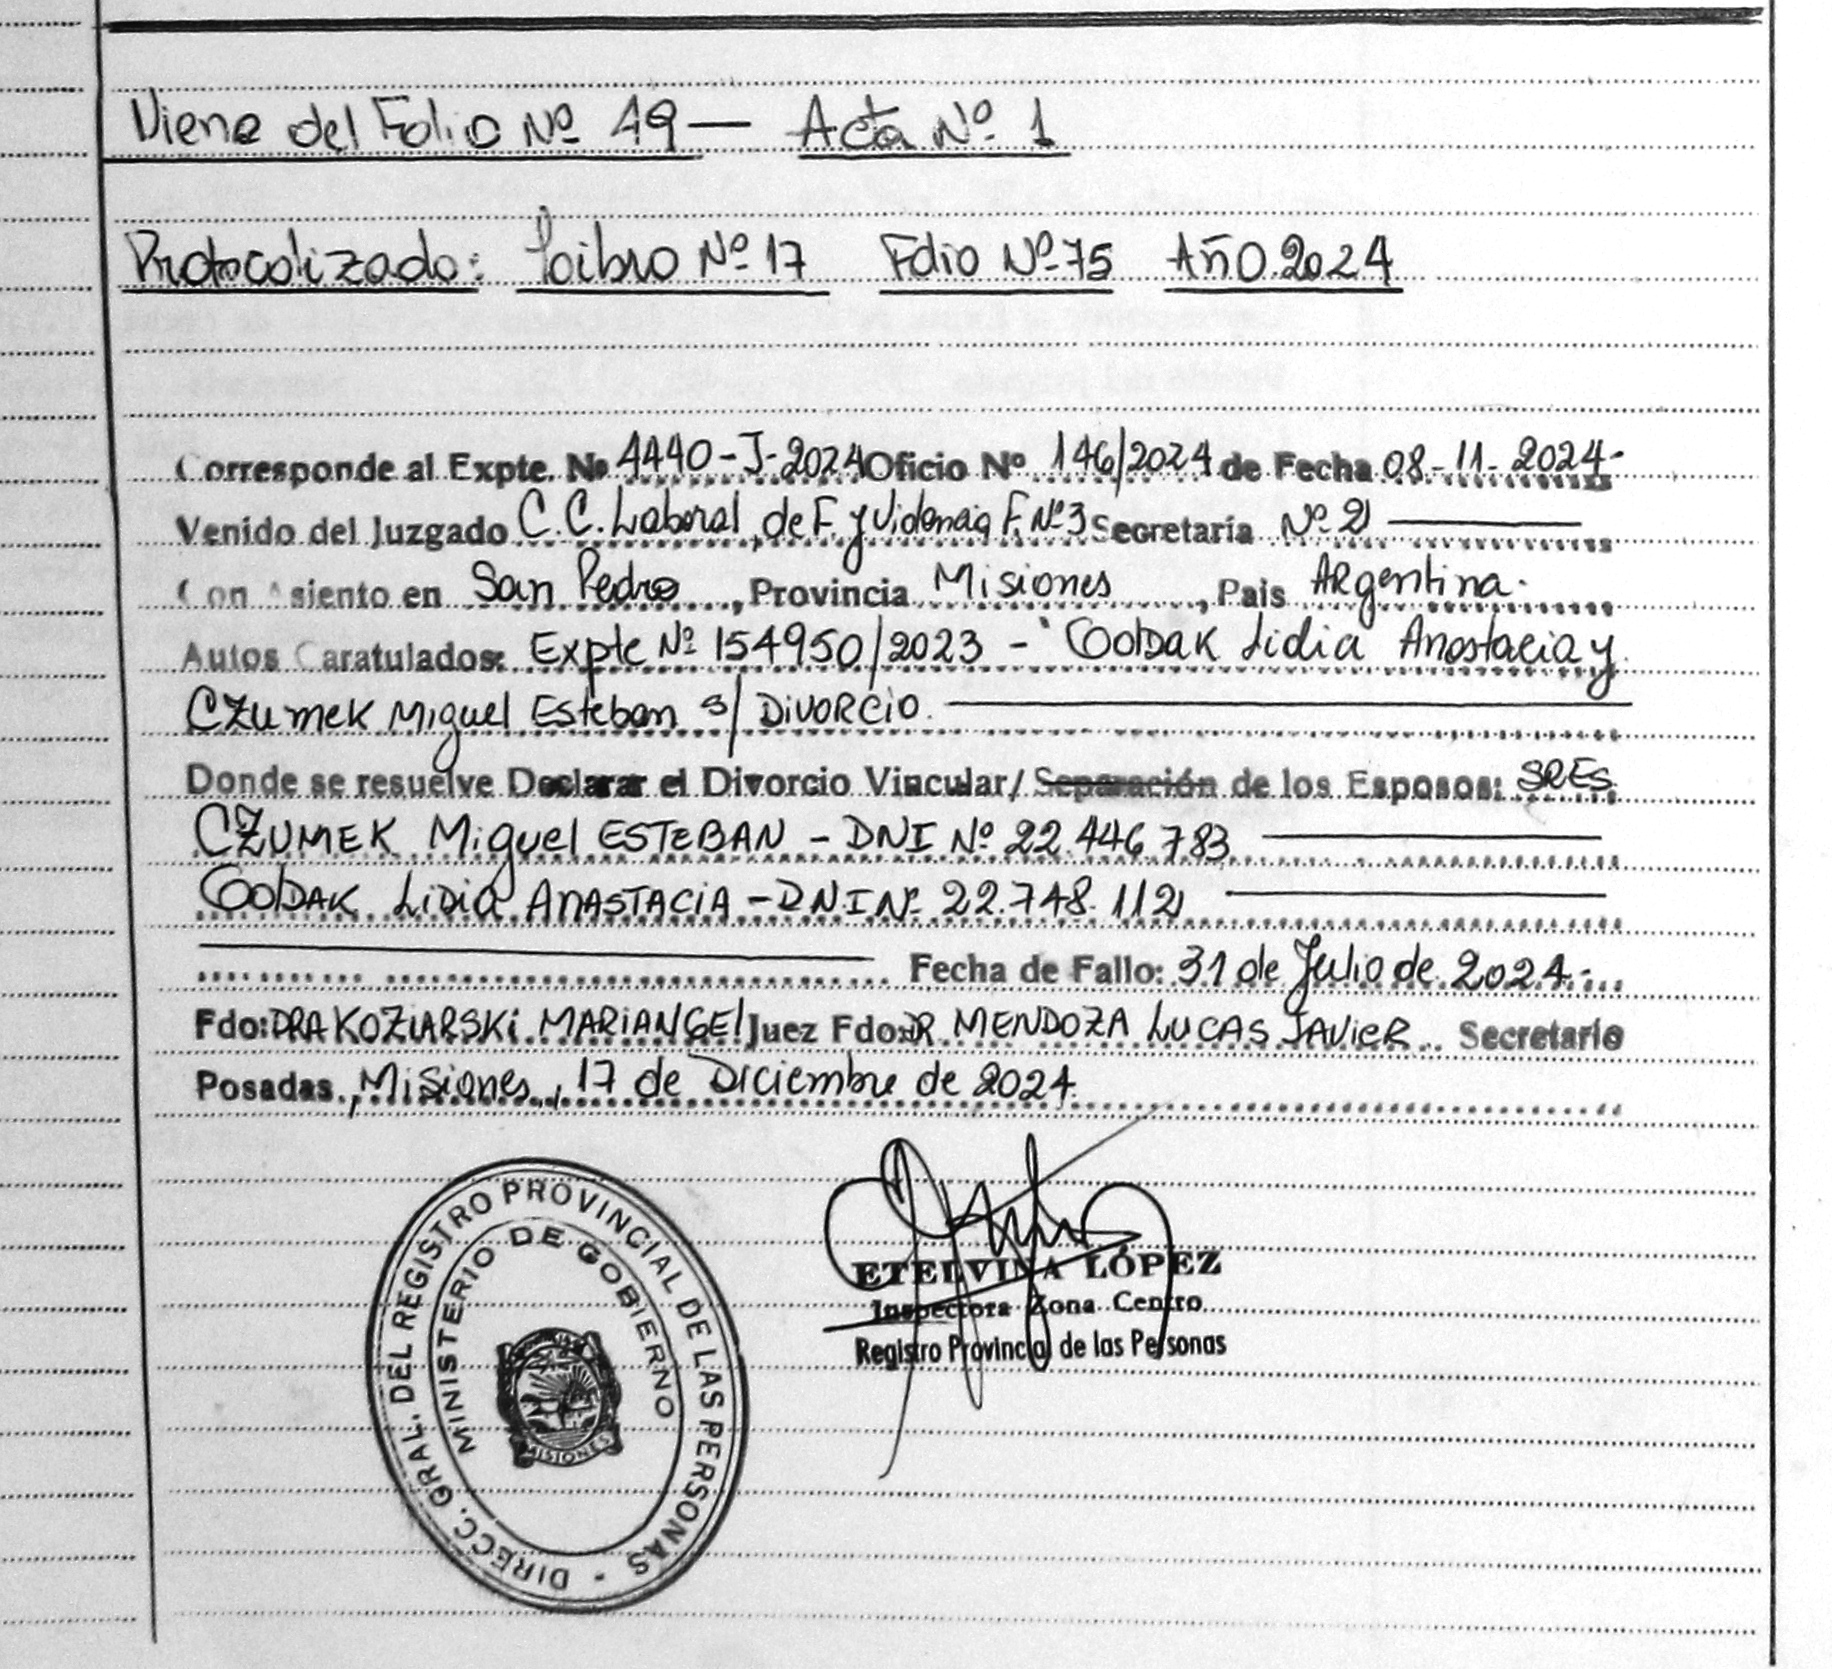 Viene del Folio Nº 49 — Acta Nº 1
Protocolizado: Libro Nº 17 Folio Nº 75 Año 2024
Corresponde al Expte. Nº 4440-J-2024 Oficio Nº 146/2024 de Fecha 08-11-2024-
Venido del Juzgado C.C. Laboral, de F. y Violencia F. Nº3 Secretaría Nº 2
Con Asiento en San Pedro, Provincia Misiones, Pais ARgentina.
Autos Caratulados: Expte Nº 154950/2023 - "GolDAK Lidia Anastacia y
CZumeK Miguel Esteban s/ DiVORCiO.
Donde se resuelve Declarar el Divorcio Vincular/ Separación de los Esposos: SRES.
CZUMEK Miguel ESTEBAN - DNI Nº 22.446.783
GolDAK LiDiA ANASTACiA - DNI Nº 22.748.112
Fecha de Fallo: 31 de Julio de 2024.-
Fdo: DRA KOZiARSKi MARiANGEl Juez Fdo: DR MENDOZA LUCAS JAVieR Secretario
Posadas, Misiones, 17 de Diciembre de 2024.
DIRECC. GRAL. DEL REGISTRO PROVINCIAL DE LAS PERSONAS -
MINISTERIO DE GOBIERNO
MISIONES
ETELVINA LÓPEZ
Inspectora Zona Centro
Registro Provincial de las Personas